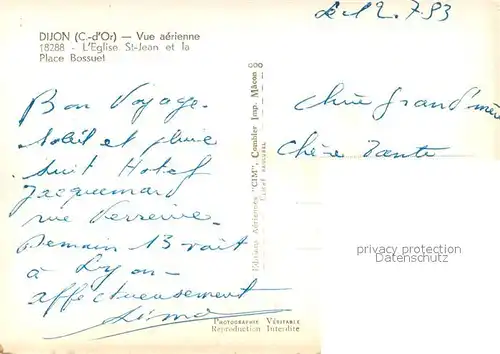 DIJON (C.-d'Or) — Vue aérienne
18288 - L'Eglise St-Jean et la
Place Bossuet
Bon Voyage.
Soleil et pluie
suit Hotel
Jacquemard
rue Verrerie.
Demain 13 août
à Lyon —
affectueusement
Le 12.
Chère Grand'mère
Chère Tante
Editions Aériennes "CIM", Combier Imp. Mâcon
privacy protection
Datenschutz
Photographie Véritable
Reproduction Interdite